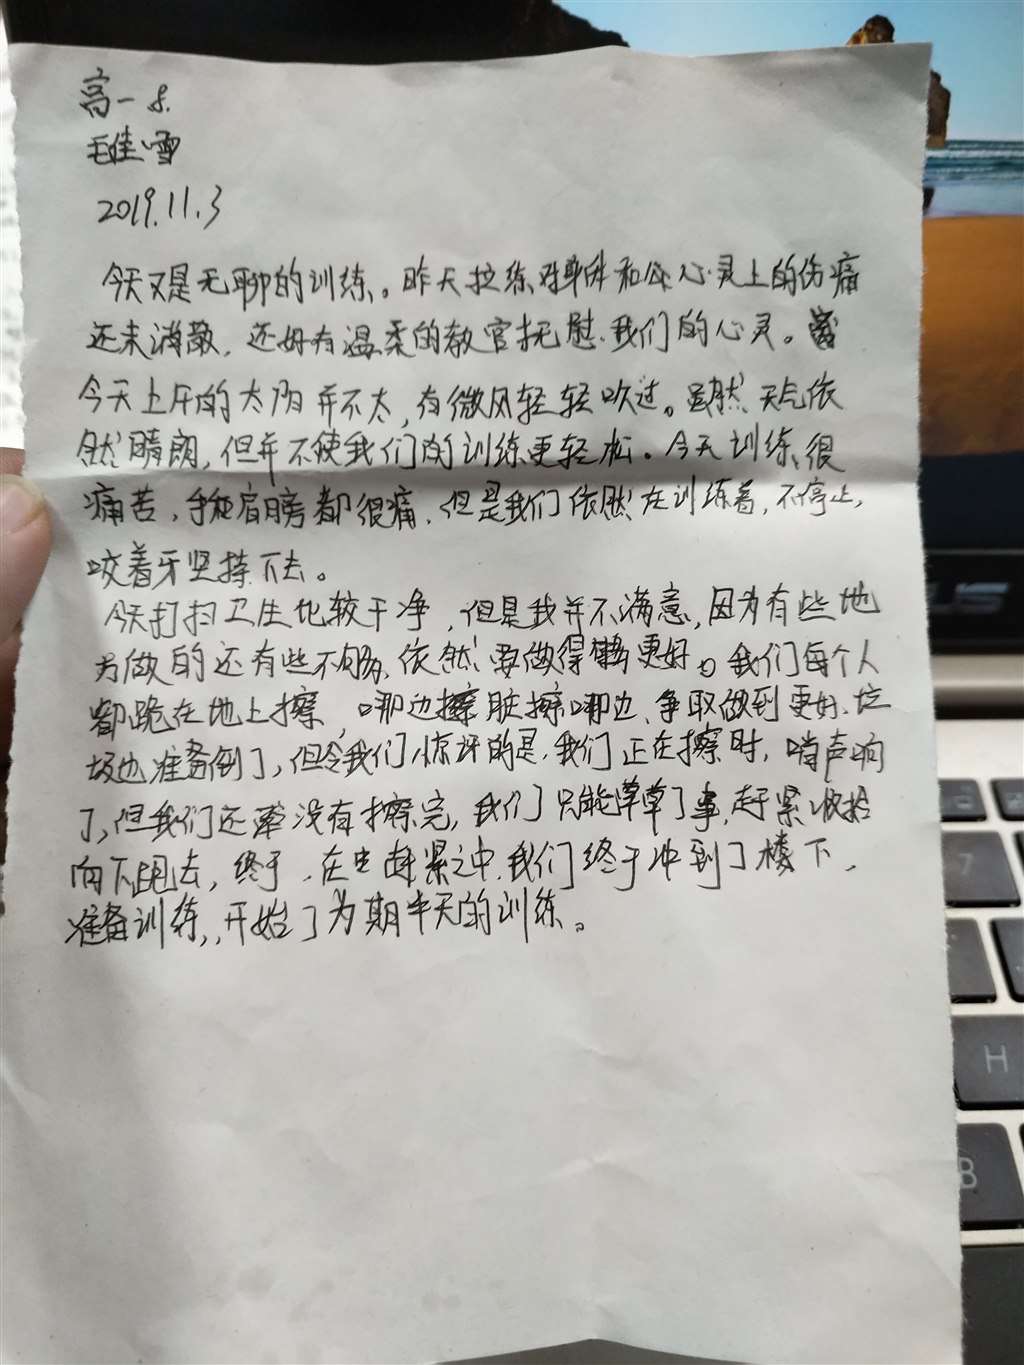 高一8.
毛佳雪
2019.11.3
今天又是无聊的训练。昨天拉练对身体和心灵上的伤痛
还未消散，还好有温柔的教官抚慰我们的心灵。
今天上午的太阳并不大，有微风轻轻吹过。虽然天气依
然晴朗，但并不使我们的训练更轻松。今天训练很
痛苦，手和肩膀都很痛，但是我们依然在训练着，不停止，
咬着牙坚持下去。
今天打扫卫生比较干净，但是我并不满意，因为有些地
方做的还有些不够，依然要做得更好。我们每个人
都跪在地上擦，哪边脏擦哪边，争取做到更好，垃
圾也准备倒了，但令我们惊讶的是，我们正在擦时，哨声响
了，但我们还没有擦完，我们只能草草了事，赶紧收拾
向下跑去，终于，在赶紧之中，我们终于冲到了楼下，
准备训练，开始了为期半天的训练。
7
H
B